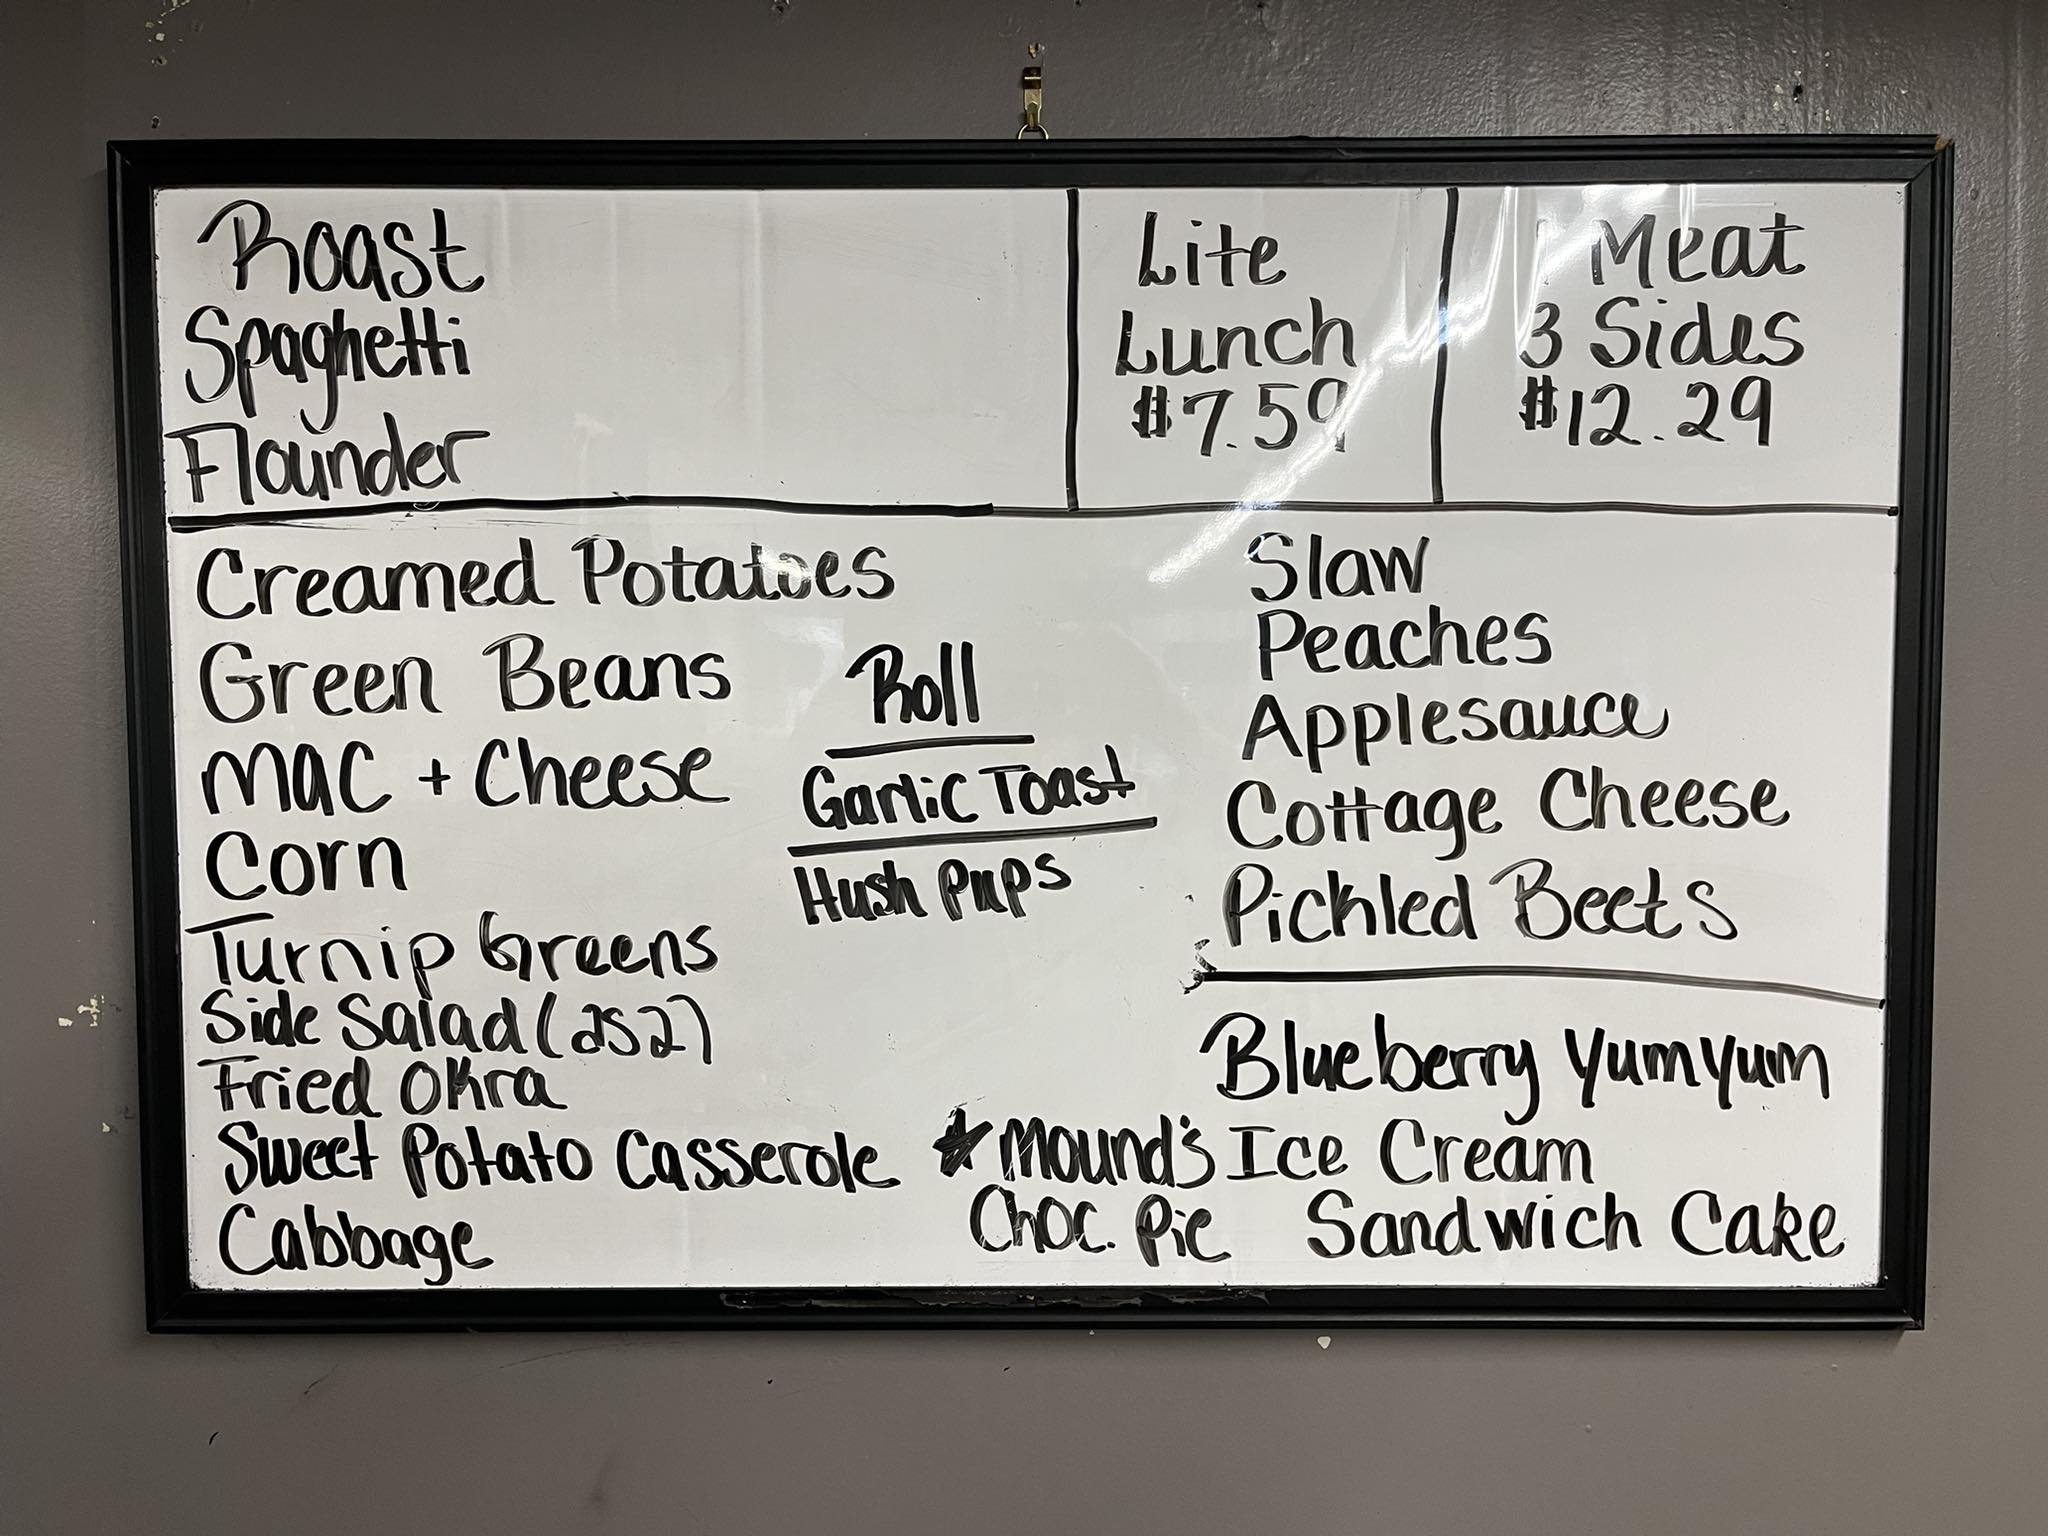 Roast
Spaghetti
Flounder
Lite
Lunch
$7.59
1 Meat
3 Sides
$12.29
Creamed Potatoes
Green Beans
Mac + Cheese
Corn
Turnip Greens
Side Salad (as 2)
Fried Okra
Sweet Potato Casserole
Cabbage
Roll
Garlic Toast
Hush Pups
Slaw
Peaches
Applesauce
Cottage Cheese
Pickled Beets
Blueberry YumYum
★ Mound's
Choc. Pie
Ice Cream
Sandwich Cake